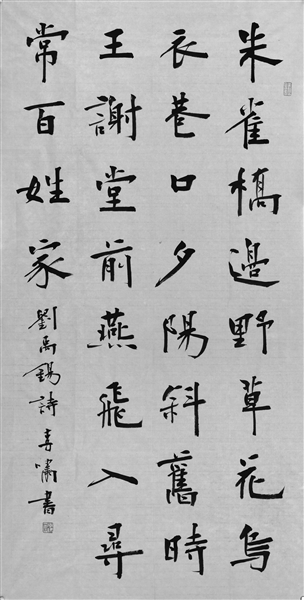 朱雀橋邊野草花烏
衣巷口夕陽斜舊時
王謝堂前燕飛入尋
常百姓家
劉禹錫詩 春嘯書